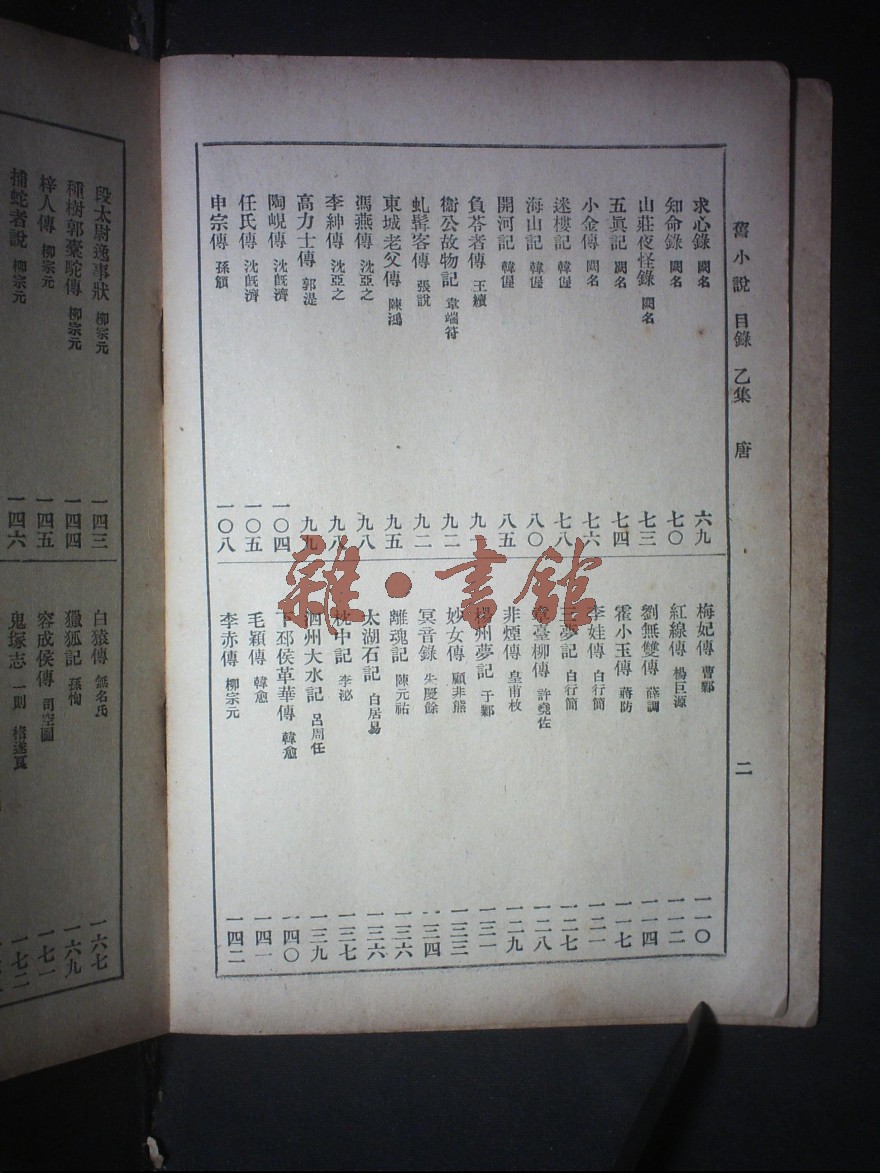 舊小說 目錄 乙集 唐 二
求心錄 闕名 六九
知命錄 闕名 七〇
山莊夜怪錄 闕名 七三
五眞記 闕名 七四
小金傳 闕名 七六
迷樓記 韓偓 七八
海山記 韓偓 八〇
開河記 韓偓 八五
負苓者傳 王績 九一
衞公故物記 韋端符 九二
虬髯客傳 張說 九二
東城老父傳 陳鴻 九五
馮燕傳 沈亞之 九八
李紳傳 沈亞之 九八
高力士傳 郭湜 九九
陶峴傳 沈旣濟 一〇四
任氏傳 沈旣濟 一〇五
申宗傳 孫頠 一〇八
梅妃傳 曹鄴 一一〇
紅線傳 楊巨源 一一二
劉無雙傳 薛調 一一四
霍小玉傳 蔣防 一一七
李娃傳 白行簡 一二一
三夢記 白行簡 一二七
章臺柳傳 許堯佐 一二八
非煙傳 皇甫枚 一二九
揚州夢記 于鄴 一三一
妙女傳 顧非熊 一三三
冥音錄 朱慶餘 一三四
離魂記 陳元祐 一三六
太湖石記 白居易 一三六
枕中記 李泌 一三七
泗州大水記 呂周任 一三九
下邳侯革華傳 韓愈 一四〇
毛穎傳 韓愈 一四一
李赤傳 柳宗元 一四二
段太尉逸事狀 柳宗元 一四三
種樹郭橐駝傳 柳宗元 一四四
梓人傳 柳宗元 一四五
捕蛇者說 柳宗元 一四六
白猿傳 無名氏 一六七
獵狐記 孫恂 一六九
容成侯傳 司空圖 一七一
鬼塚志 一則 褚遂良 一七二
雜·書館